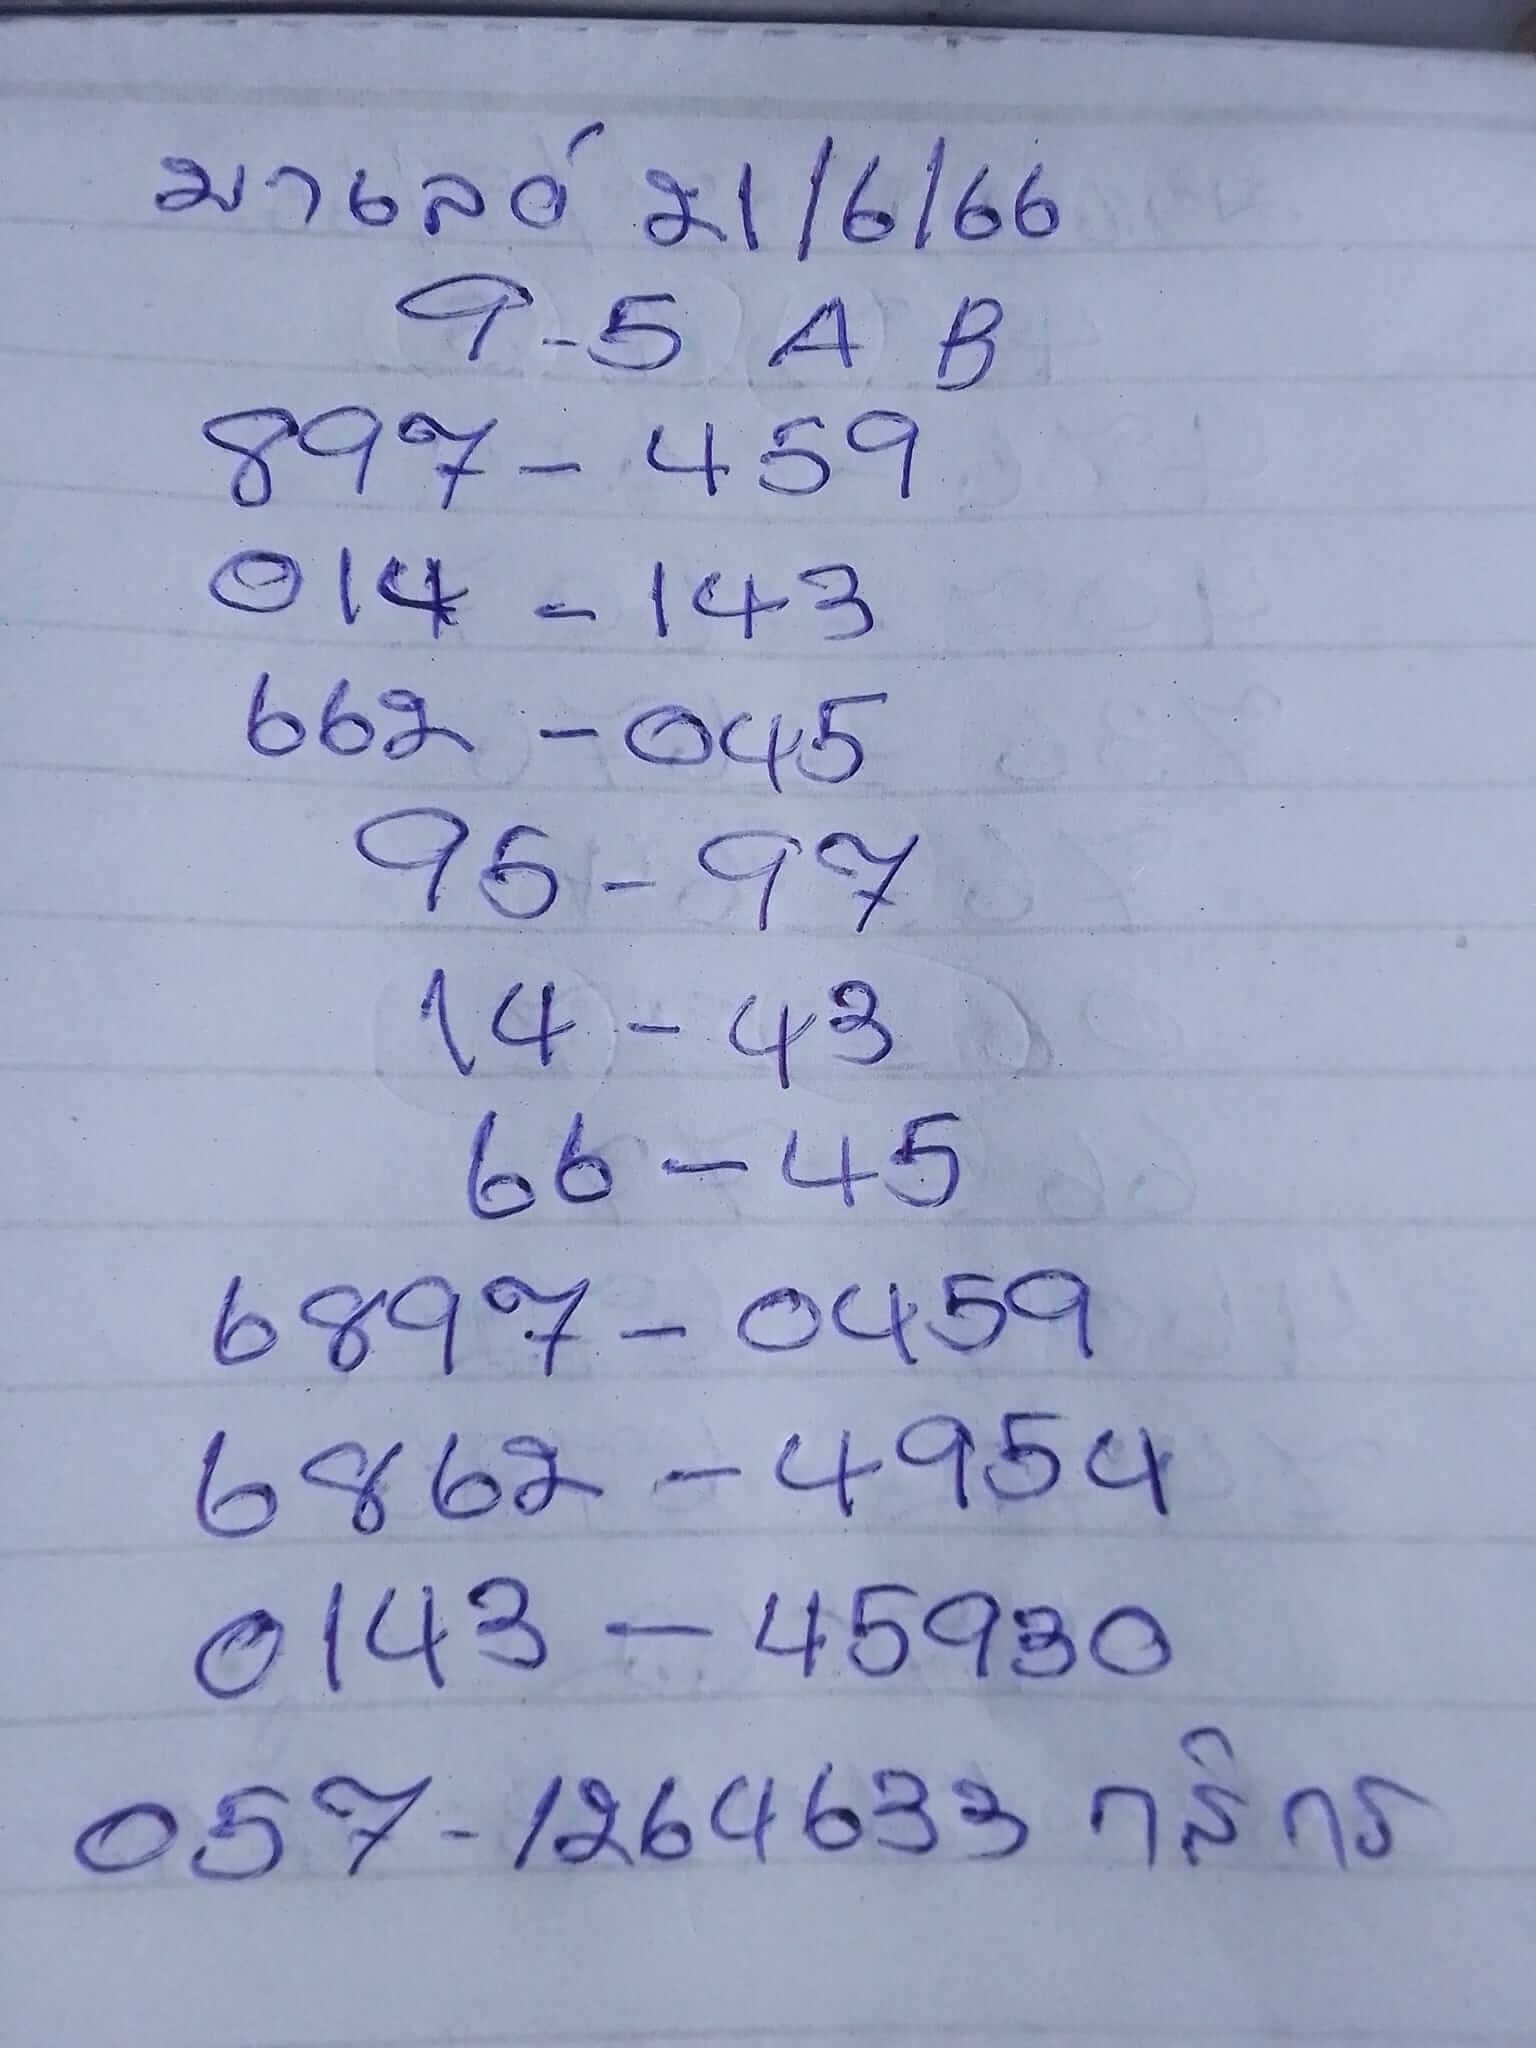 มาเลย์ 21/6/66
9-5 A B
897-459
014-143
662-045
95-97
14-43
66-45
6897-0459
6862-4954
0143-45930
057-1264633 กสิกร